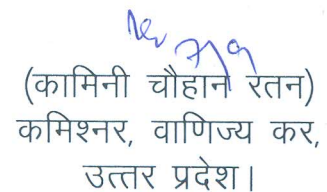 (कामिनी चौहान रतन)
कमिश्नर, वाणिज्य कर,
उत्तर प्रदेश।